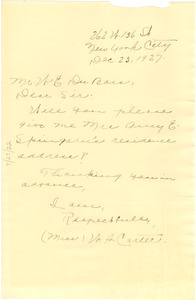 262 W 136 St
New York City
Dec. 23. 1927.
Mr W. E. Du Bois,
Dear Sir:
Will you please
give me Mrs Amy E.
Spingarn's residence
address?
Thanking you in
advance,
I am,
Respectfully,
(Miss) W. A. Carter